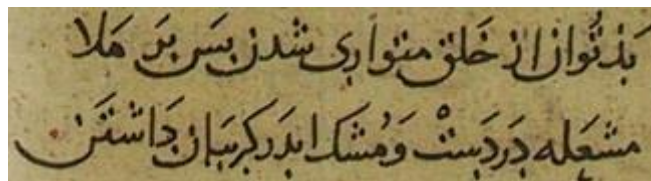 بَذ تُوان از خَلق متواری شدن بسَ بَر مَلا
مشعَله دَر دَستْ وَ مُشک اندَر کریبان دَاشتَن